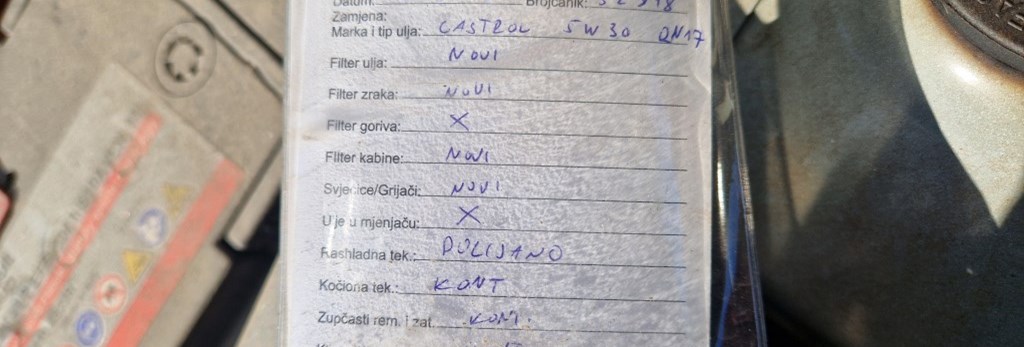 Datum: Brojčanik:
Zamjena:
Marka i tip ulja: CASTROL 5W30
Filter ulja: NOVI
Filter zraka: NOVI
Filter goriva: X
FIlter kabine: NOVI
Svjećice/Grijači: NOVI
Ulje u mjenjaču: X
Rashladna tek.: DOLIJANO
Kočiona tek.: KONT
Zupčasti rem. i zat. KONT.